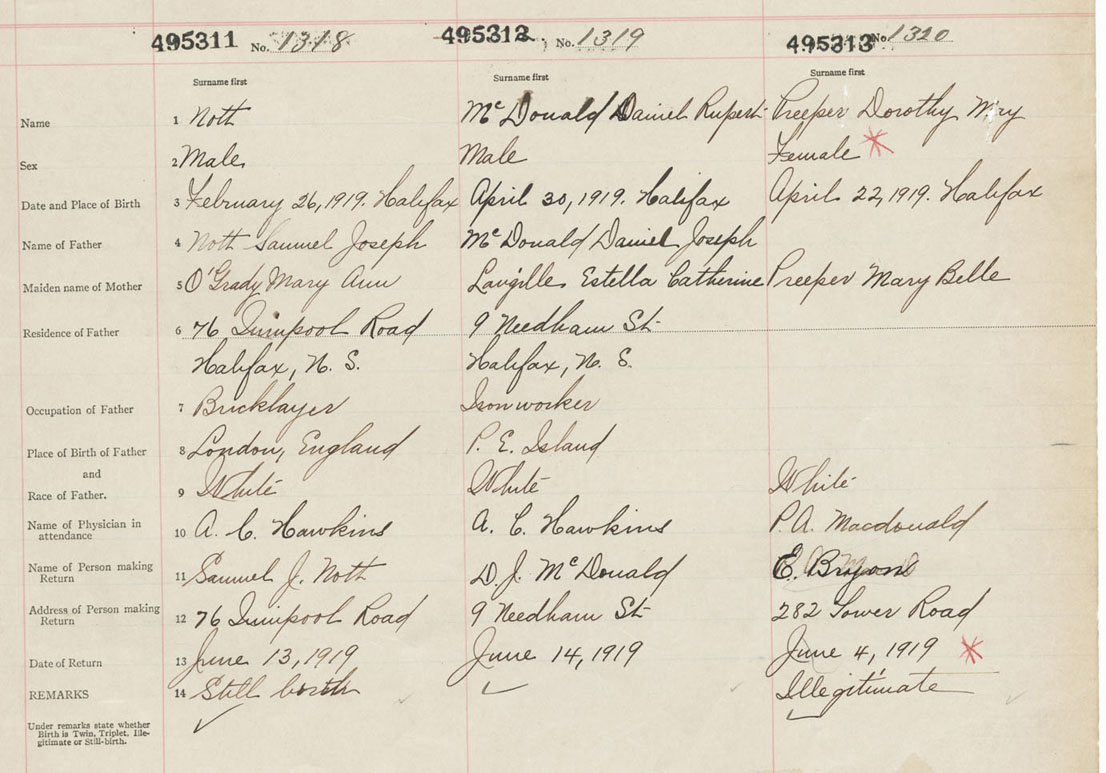 495311 No. 1318 495312 No. 1319 495313 No. 1320
Surname first Surname first Surname first
Name 1 Noth McDonald Daniel Rupert Preeper Dorothy May
Sex 2 Male Male Female
Date and Place of Birth 3 February 26, 1919. Halifax April 30, 1919. Halifax April 22, 1919. Halifax
Name of Father 4 Noth Samuel Joseph McDonald Daniel Joseph
Maiden name of Mother 5 O'Grady Mary Ann Langille Estella Catherine Preeper Mary Belle
Residence of Father 6 76 Quinpool Road 9 Needham St.
Halifax, N. S. Halifax, N. S.
Occupation of Father 7 Bricklayer Ironworker
Place of Birth of Father 8 London, England P. E. Island
and
Race of Father. 9 White White White
Name of Physician in
attendance 10 A. C. Hawkins A. C. Hawkins P. A. Macdonald
Name of Person making
Return 11 Samuel J. Noth D. J. McDonald E.
Address of Person making
Return 12 76 Quinpool Road 9 Needham St. 282 Tower Road
Date of Return 13 June 13, 1919 June 14, 1919 June 4, 1919
REMARKS 14 Still birth Illegitimate
Under remarks state whether
Birth is Twin, Triplet, Ille-
gitimate or Still-birth.